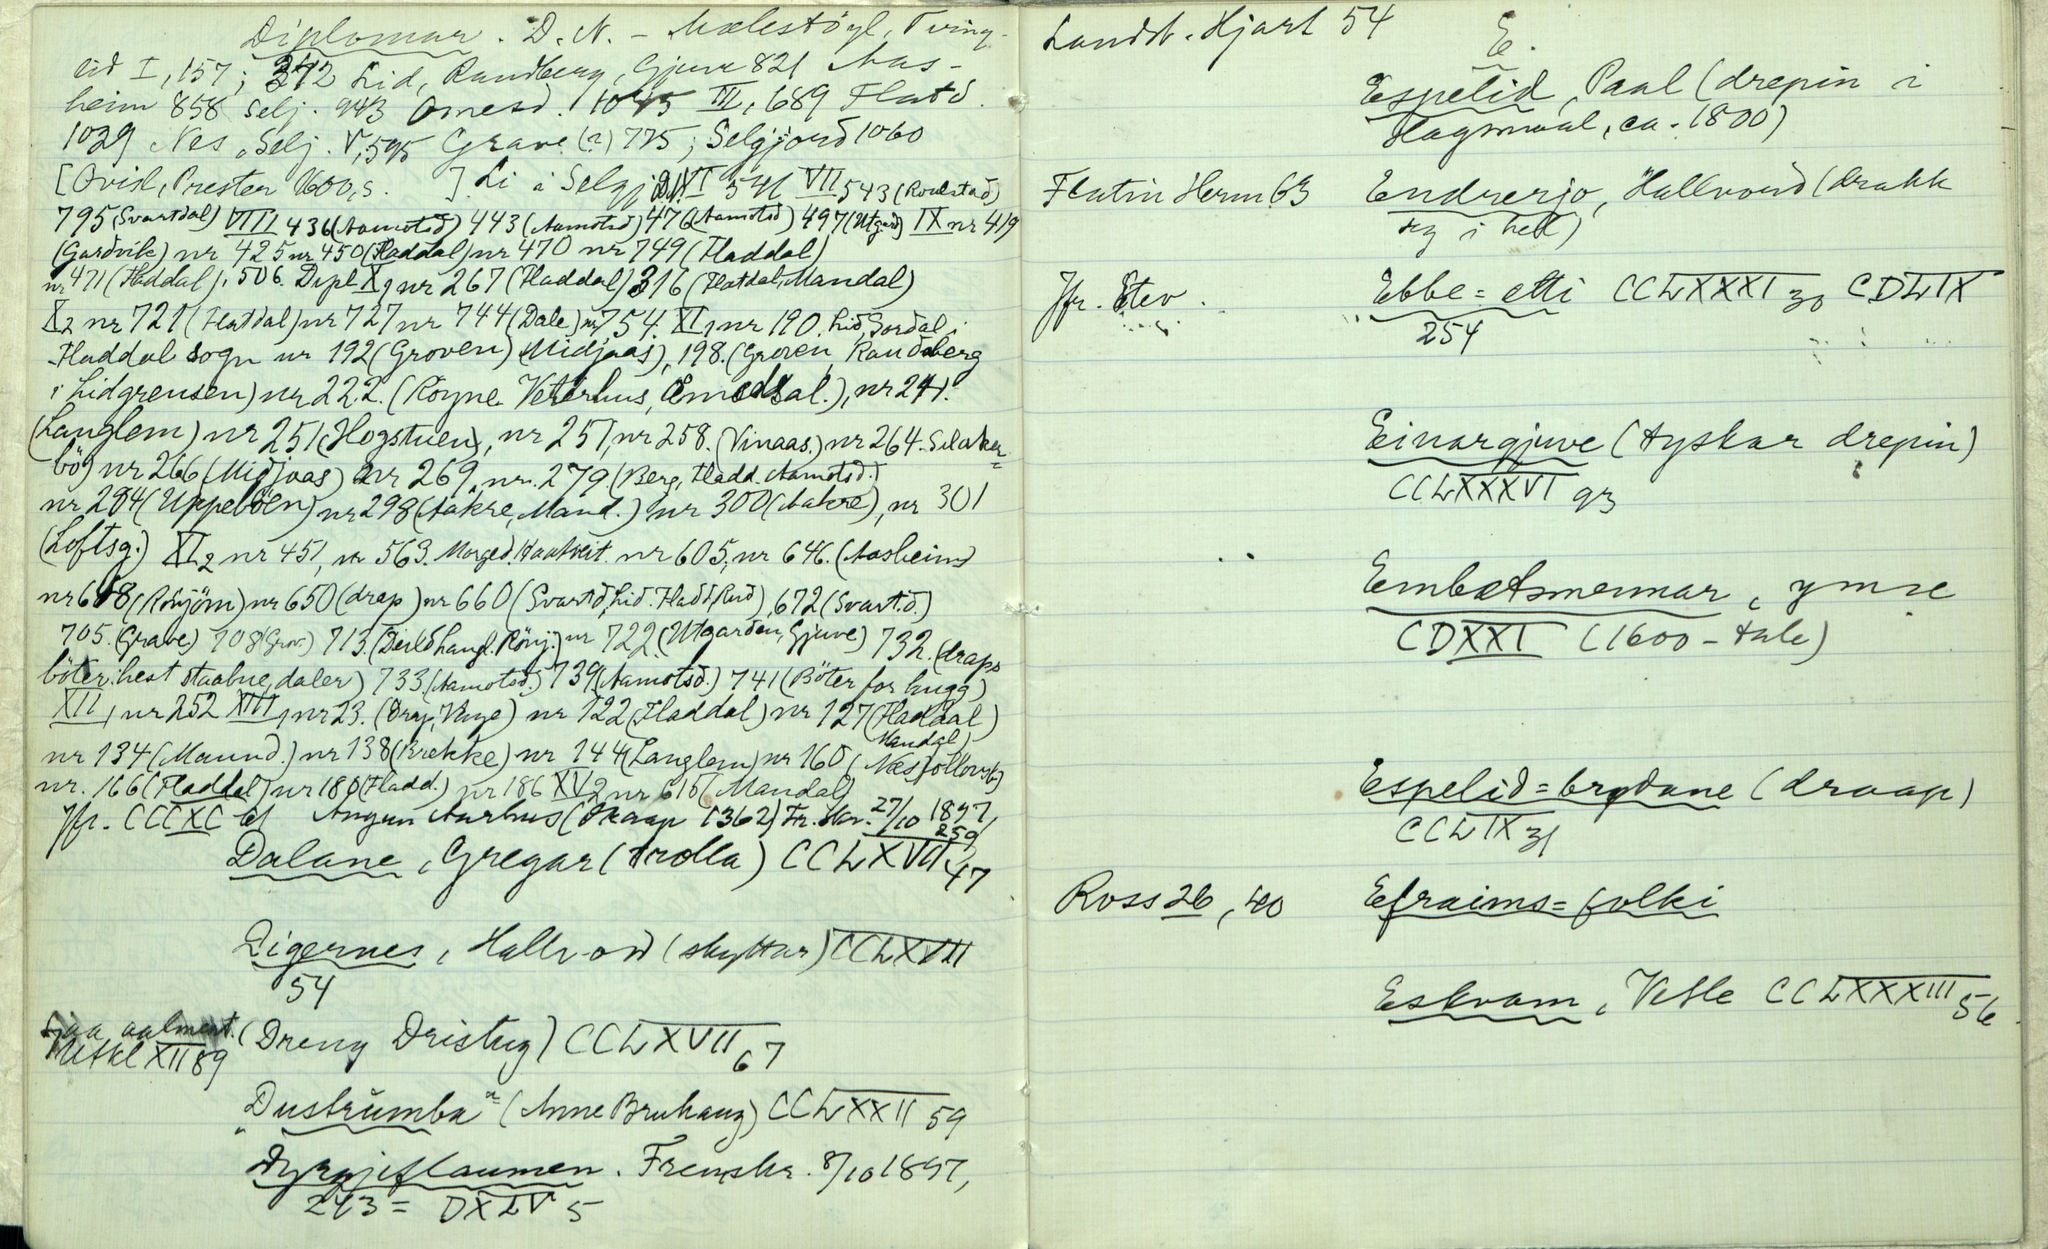 Diplomar. D. N. – Mælestøyl, Tving-
eid I, 157; 342 Lid, Randberg, Gjuve 821 Aas-
heim 858 Selj. 943 Omesd. 1045 III, 689 Flatd.
1029 Nes, Selj. V, 595 Grave (?) 775; Selgjord 1060
[Ovid, Prester 1600, s. ] Li i Selgj. VI VII 543 (Roalstad)
795 (Svartdal) VIII 436 (Aamotsd) 443 (Aamotsd) 476 (Aamotsd) 497 (Utgard) IX nr 419
(Gardvik) nr 425 nr 450 (Fladdal) nr 470 nr 749 (Fladdal)
nr 471 (Fladdal), 506. Dipl X1 nr 267 (Fladdal) 316 (Flatdal, Mandal)
X2 nr 721 (Flatdal) nr 727 nr 744 (Dale) nr 754. XI1 nr 190. Lid, Sordal i
Fladdal sogn nr 192 (Groven) (Midjaas), 198. (Groven, Randsberg
i Lidgrensen) nr 222. (Røyne Veterhus, Omedal.), nr 241.
(Langlem) nr 251 (Hogstuen), nr 257, nr 258. (Vinaas.) nr 264. Selaker-
bø) nr 266 (Midjaas) nr 269, nr. 279 (Berg, Fladd. Aamotsd.)
nr 284 (Uppebøen) nr 298 (Aakre, Mand.) nr 300 (Aakre), nr 301
(Loftsg.) XI2 nr 451, nr 563. Morged. Haatveit. nr 605, nr 646. (Aasheim)
nr 648 (Rønjøm) nr 650 (drap) nr 660 (Svartd, Lid. Fladd, Rud) 672 (Svart.d.)
705. (Grave) 708 (Grov.) 713. nr 722. (Utgarden, Gjuve) 732. (draps
bøter: hest staalhue, daler) 733 (Aamotsd.) 739 (Aamotsd.) 741 (Bøter for hugg)
XII, nr 252 XIII, nr 23. nr 122 (Fladdal) nr 127 (Fladdal
Mandal)
nr 134 (Maund.) nr 138 (Brekke) nr 144 (Langlem) nr 160
nr. 166 (Fladdal) nr 180 (Fladd.) nr 186 XV2 nr 615 (Mandal)
Jfr. CCCXC 61 Angun Aarhus (Skaap 1362) Fr. Skr. 27/10 1897,
259
Dalane, Gregar (trolla) CCLXVII 47
Digernes, Hallvord (skyttar) CCLXVII
54
aalment.
XII 89 (Dreng Dristug) CCLXVII 67
"Dustrumba" (Anne Bruhaug) CCLXXII 59
Dyrgjeflaumen. Fremskr. 8/10 1897,
243 = DXLV 5
Landst. Hjart 54
E.
Espelid, Paal (drepin i
Hagsmaal, ca. 1800)
Flatin Herm 63 Endrerjo, Hallvord (drakk
seg i hel)
Jfr. Etev. Ebbe= etti CCLXXXI 30 CDLIX
254
Einargjuve (tyskar drepin)
CCLXXXVI 93
Embætsmennar, ymse
CDXXI (1600-tale)
Espelid=brødane (draap)
CCLIX 31
Ross 26, 40 Efraims=folki
Eskvam, Vetle CCLXXXIII 56